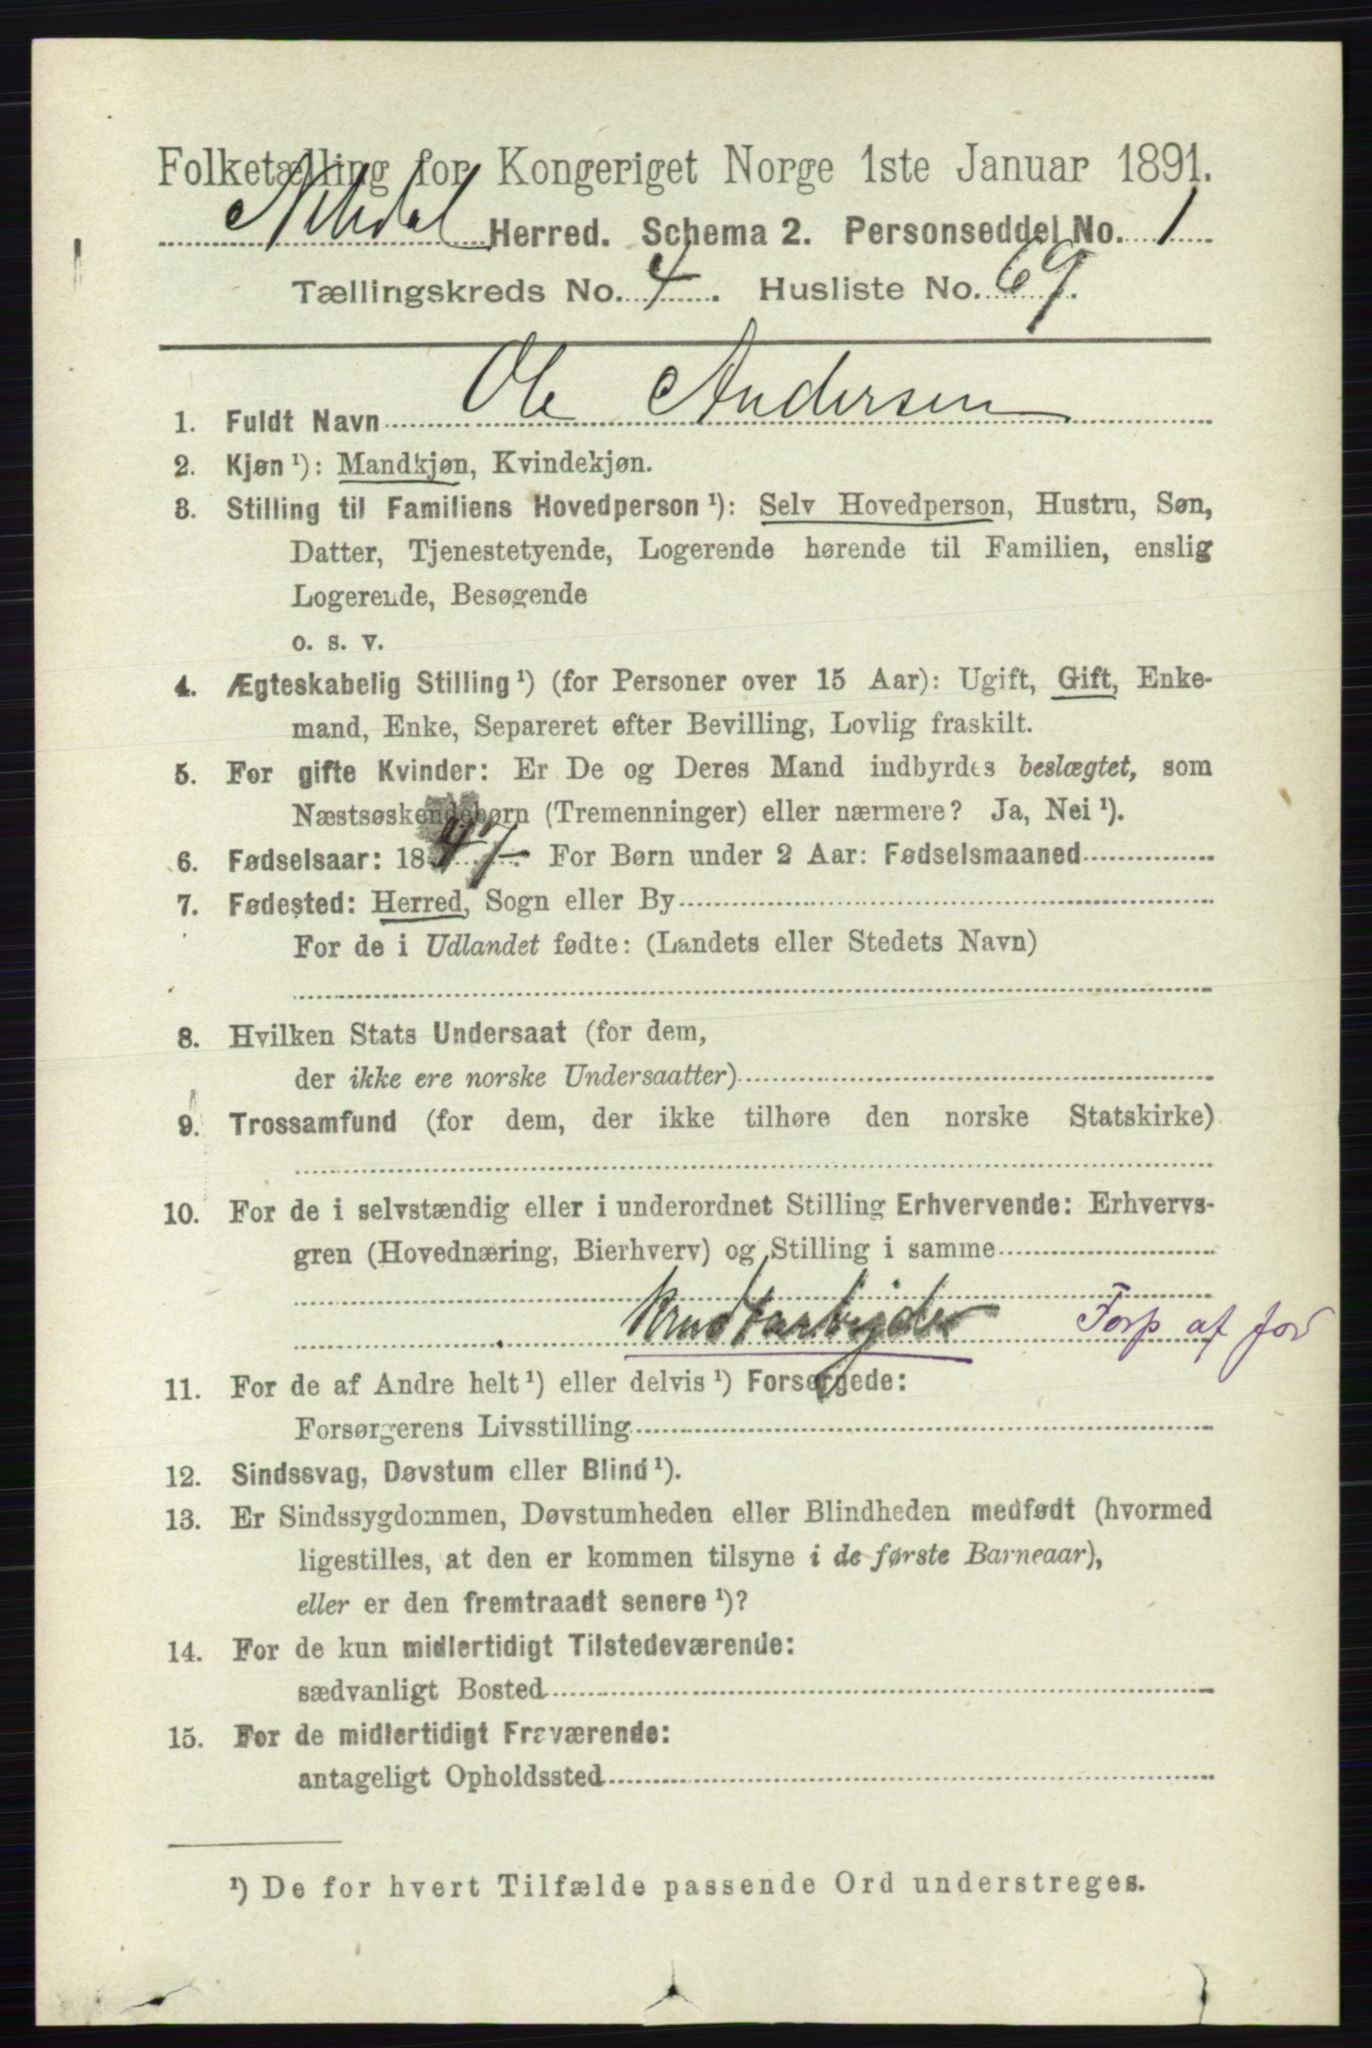 Folketælling for Kongeriget Norge 1ste Januar 1891.
Nitedal Herred. Schema 2. Personseddel No. 1
Tællingskreds No. 4. Husliste No. 69.
1. Fuldt Navn Ole Andersen
2. Kjøn ¹): Mandkjøn, Kvindekjøn.
3. Stilling til Familiens Hovedperson ¹): Selv Hovedperson, Hustru, Søn,
Datter, Tjenestetyende, Logerende hørende til Familien, enslig
Logerende, Besøgende
o. s. v.
4. Ægteskabelig Stilling ¹) (for Personer over 15 Aar): Ugift, Gift, Enke-
mand, Enke, Separeret efter Bevilling, Lovlig fraskilt.
5. For gifte Kvinder: Er De og Deres Mand indbyrdes beslægtet, som
Næstsøskendebørn (Tremenninger) eller nærmere? Ja, Nei ¹).
6. Fødselsaar: 1847. For Børn under 2 Aar: Fødselsmaaned
7. Fødested: Herred, Sogn eller By
For de i Udlandet fødte: (Landets eller Stedets Navn)
8. Hvilken Stats Undersaat (for dem,
der ikke ere norske Undersaatter)
9. Trossamfund (for dem, der ikke tilhøre den norske Statskirke)
10. For de i selvstændig eller i underordnet Stilling Erhvervende: Erhvervs-
gren (Hovednæring, Bierhverv) og Stilling i samme
Krudtarbejder Forp af jor
11. For de af Andre helt ¹) eller delvis ¹) Forsørgede:
Forsørgerens Livsstilling
12. Sindssvag, Døvstum eller Blind ¹).
13. Er Sindssygdommen, Døvstumheden eller Blindheden medfødt (hvormed
ligestilles, at den er kommen tilsyne i de første Barneaar),
eller er den fremtraadt senere ¹)?
14. For de kun midlertidigt Tilstedeværende:
sædvanligt Bosted
15. For de midlertidigt Fraværende:
antageligt Opholdssted
¹) De for hvert Tilfælde passende Ord understreges.